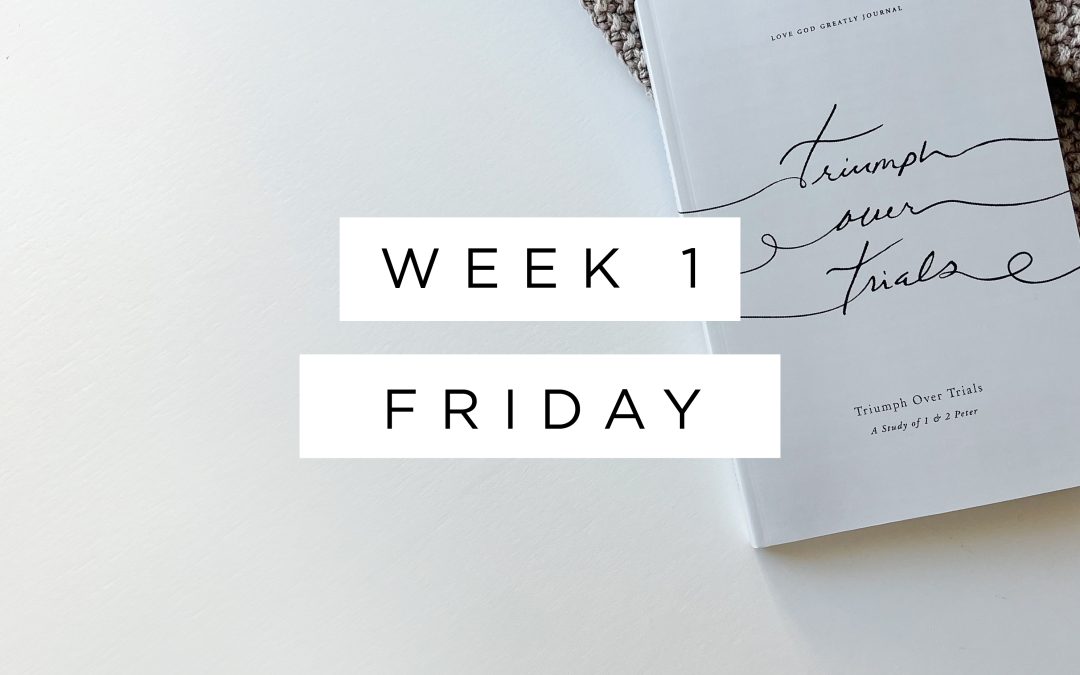 LOVE GOD GREATLY JOURNAL
Triumph
over
Trials
WEEK 1
FRIDAY
Triumph Over Trials
A Study of 1 & 2 Peter